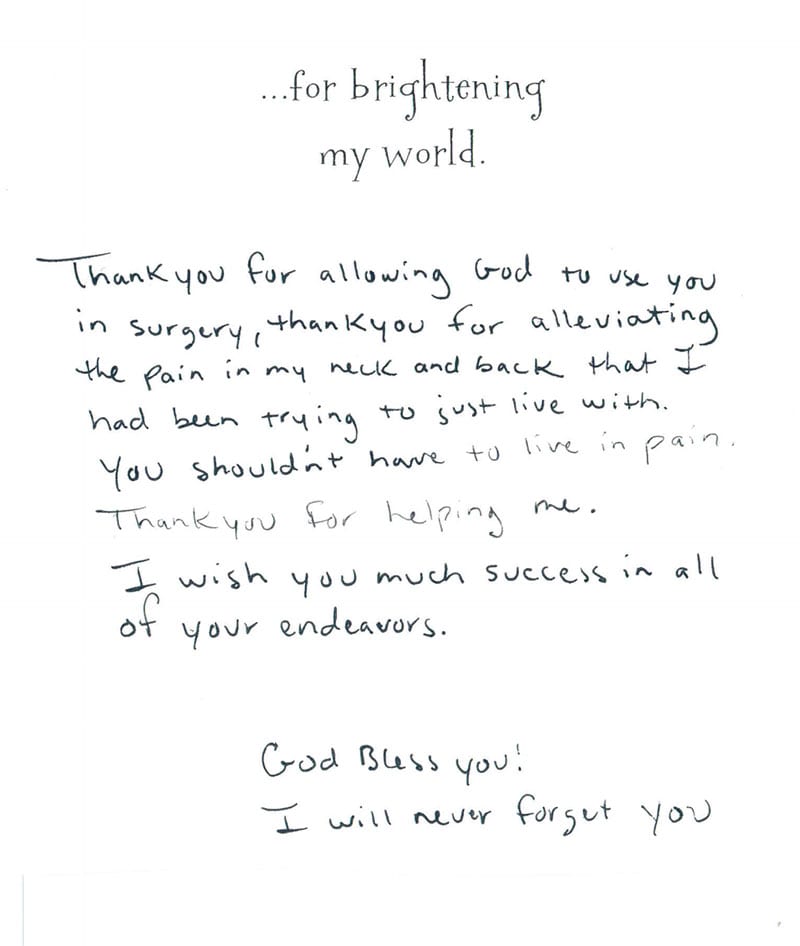 ...for brightening
my world.
Thank you for allowing God to use you
in surgery, thank you for alleviating
the pain in my neck and back that I
had been trying to just live with.
You shouldn't have to live in pain.
Thank you for helping me.
I wish you much success in all
of your endeavors.
God Bless you!
I will never forget you